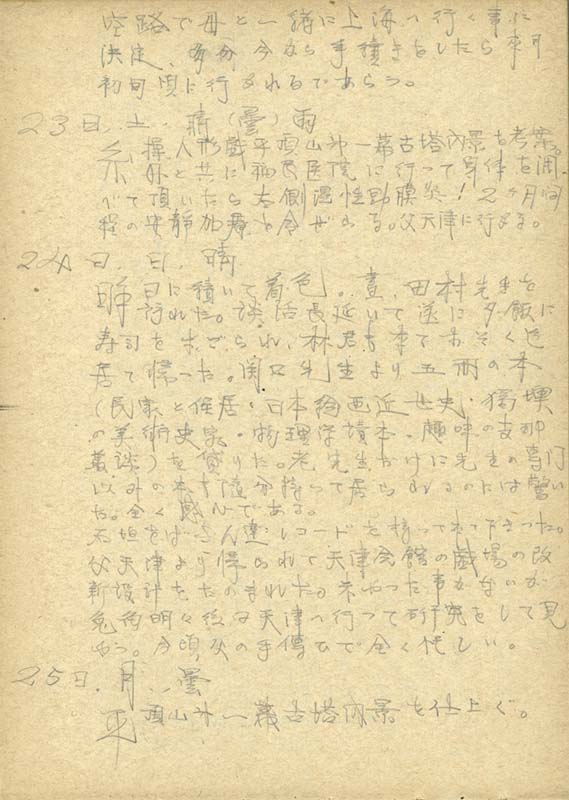 空路で母と一緒に上海へ行く事に
決定、多分今から手続きをしたら来月
初旬頃に行かれるであらう。
23日、土、晴(曇)雨
糸操人形戯平頂山外一幕古塔内景を考案。
外と共に福民医院に行って身体を調
べて頂いたら右側湿性肋膜炎!2ヶ月間
程の安静加療を命ぜらる。父天津に行かる。
24日、日、晴
昨日に積いて着色。昼、田村先生を
訪れた。談話長延いて遂に夕飯に
寿司をよざられ、林君も来ておそく迄
居て帰った。関口先生より五冊の本
(民家と住居・日本絵画近世史・独墺
の美術史家・物理学読本・趣味の支那
叢談)を貸りた。老先生だけに先生の専門
以外の本も随分持って居られるのには驚い
た。全く感心である。
石垣をばさん達レコードを持って来て下さった。
父天津より帰られて天津会館の戯場の改
新設計をたのまれた。やった事がないが
兎角明々後日天津へ行って研究をして見
やう。今頃父の手傳ひで全く忙しい。
25日、月、曇
平頂山外一幕古塔内景を仕上ぐ。